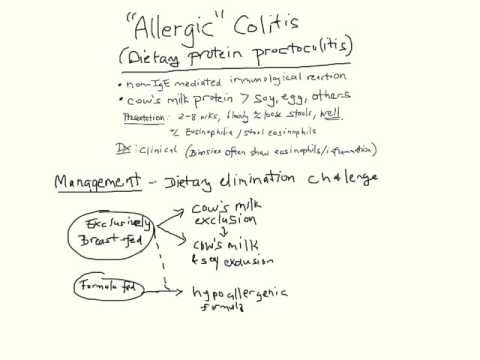 "Allergic" Colitis
(Dietary protein proctocolitis)
• non-IgE mediated immunological reaction
• cow's milk protein > soy, egg, others
Presentation: 2-8 wks, bloody loose stools, well,
Eosinophilia / stool eosinophils
Dx: Clinical (Biopsies often show eosinophils/inflammation)
Management - Dietary elimination challenge
Exclusively
Breast fed
cow's milk
exclusion
cow's milk
& soy exclusion
Formula fed
hypoallergenic
formula